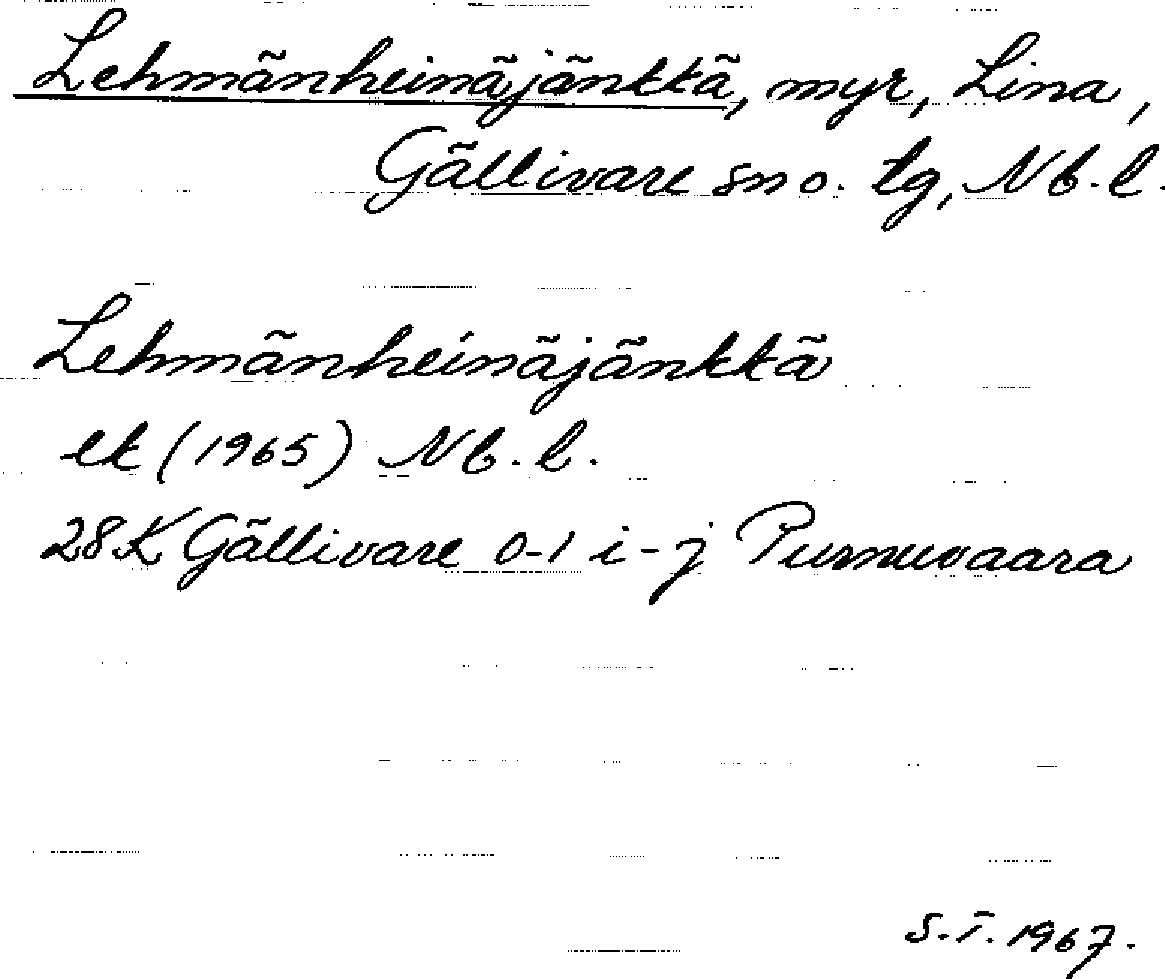 Lehmänheinäjänkkä, myr, Lina,
Gällivare sn o. tg, Nb. l.
Lehmänheinäjänkkä
ek (1965) Nb. l.
28K Gällivare 0-1 i-j Purnuvaara
S.T. 1967.